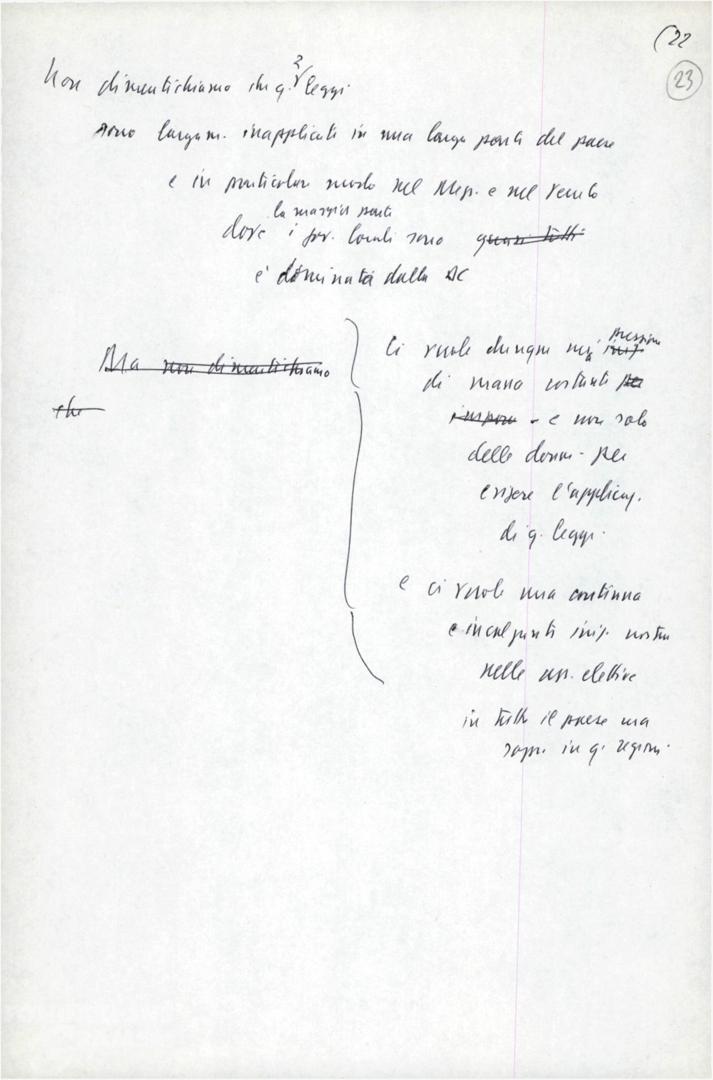 (22
23
Non dimentichiamo che q. 2 leggi
sono largam. inapplicate in una larga parte del paese
e in particolar modo nel Mezz. e nel Veneto
la maggior parte
dove i gov. locali sono quasi tutti
è dominata dalla DC
Ma non dimentichiamo
che
Ci vuole dunque una pressione
di massa costante per
imporre - e non solo
delle donne - per
esigere l'applicaz.
di q. leggi.
e ci vuole una continua
e incalzante iniz. nostra
nelle ass. elettive
in tutto il paese ma
sopr. in q. regioni.